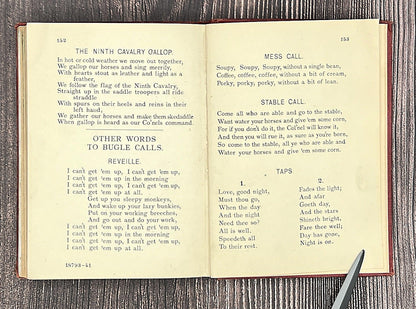 152
THE NINTH CAVALRY GALLOP.
In hot or cold weather we move out together,
We gallop our horses and sing merrily,
With hearts stout as leather and light as a
feather,
We follow the flag of the Ninth Cavalry,
Straight up in the saddle troopers all ride
straddle
With spurs on their heels and reins in their
left hand,
We gather our horses and make them skedaddle
When gallop is heard as our Co'nels command.
OTHER WORDS
TO BUGLE CALLS.
REVEILLE.
I can't get 'em up, I can't get 'em up,
I can't get 'em up in the morning
I can't get 'em up, I can't get 'em up,
I can't get 'em up at all.
Get up you sleepy monkeys,
And wake up your lazy bunkies,
Put on your working breeches,
And go out and do your work,
I can't get 'em up, I can't get 'em up,
I can't get 'em up in the morning
I can't get 'em up, I can't get 'em up,
I can't get 'em up at all.
18793—11
153
MESS CALL.
Soupy, Soupy, Soupy, without a single bean,
Coffee, coffee, coffee, without a bit of cream,
Porky, porky, porky, without a bit of lean.
STABLE CALL.
Come all who are able and go to the stable,
Want water your horses and give 'em some corn,
For if you don't do it, the Co'nel will know it,
And then you will rue it, as sure as you're born,
So come to the stable, all ye who are able and
Water your horses and give 'em some corn.
TAPS
1.
Love, good night,
Must thou go,
When the day
And the night
Need thee so?
All is well.
Speedeth all
To their rest.
2.
Fades the light;
And afar
Goeth day,
And the stars
Shineth bright,
Fare thee well;
Day has gone,
Night is on.